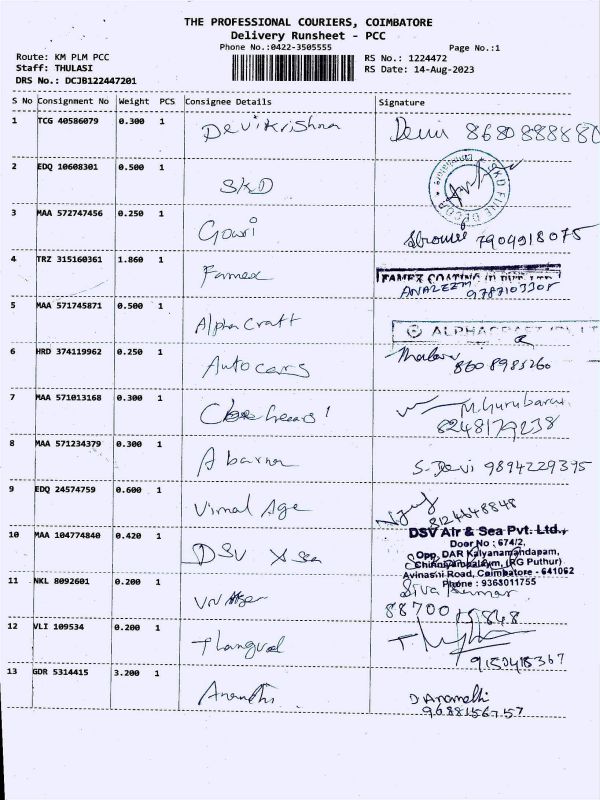 THE PROFESSIONAL COURIERS, COIMBATORE
Delivery Runsheet - PCC
Phone No.:0422-3505555 Page No.:1
Route: KM PLM PCC RS No.: 1224472
Staff: THULASI RS Date: 14-Aug-2023
DRS No.: DCJB122447201
S No Consignment No Weight PCS Consignee Details Signature
1 TCG 40586079 0.300 1 Devikrishna 8680888880
2 EDQ 10608301 0.500 1 SKD SKD FINE DECOR
3 MAA 572747456 0.250 1 Gowri 7904918075
4 TRZ 315160361 1.860 1 Famex FAMEX COATING
9787103308
5 MAA 571745871 0.500 1 Alpha Craft ALPHACRAFT
6 HRD 374119962 0.250 1 Auto cars 8608985260
7 MAA 571013168 0.300 1 M.Gurubaran
8248179238
8 MAA 571234379 0.300 1 Abarna S-Devi 9894229395
9 EDQ 24574759 0.600 1 Vimal Age 8124648848
10 MAA 104774840 0.420 1 DSV DSV Air & Sea Pvt. Ltd.,
Door No : 674/2,
Opp. DAR Kalyanamandapam,
Chinniyampalayam, (RG Puthur)
Avinashi Road, Coimbatore - 641062
Phone : 9368011755
11 NKL 8092601 0.200 1 Siva Kumar
12 VLI 109534 0.200 1 9150415367
13 GDR 5314415 3.200 1 Ananthi D Ananthi
9688156757